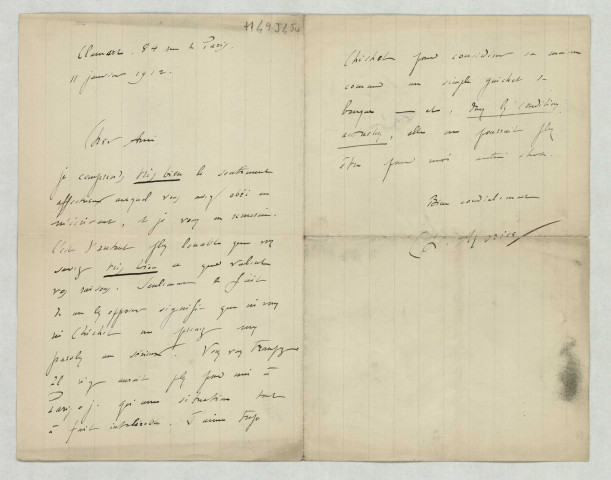 Clamart. 84 rue de Paris.
11 janvier 1912.
Cher Ami
je comprends très bien le sentiment
affectueux auquel vous avez obéi en
m'écrivant, et je vous en remercie.
C'est d'autant plus louable que vous
savez très bien ce que valent
vos raisons. Seulement le fait
de me les opposer signifie que ni vous
ni Chichet ne prenez mes
paroles au sérieux. Vous vous trompez
il n'y aurait plus pour moi à
qu'une situation tout
à fait intolérable. J'aime trop
Chichet pour considérer sa maison
comme un simple guichet de
banque — et, dans les conditions
actuelles, elle ne pourrait plus
être pour moi autre chose.
Bien cordialement
Ch. Morice